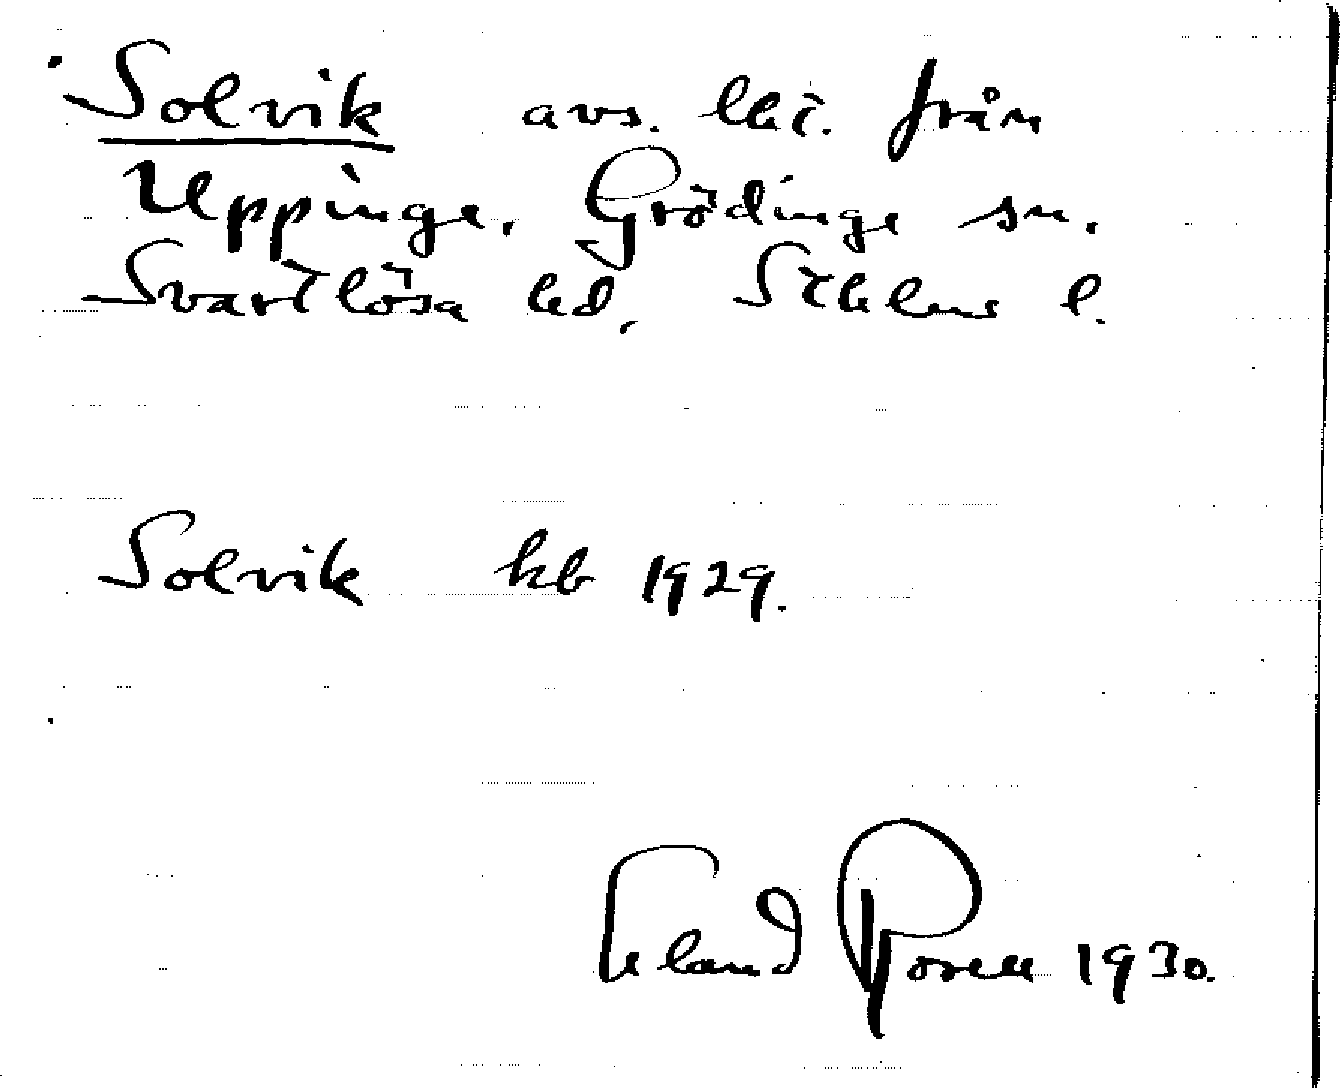 Solvik avs. lht. från
Uppinge, Grödinge sn.
Svartlösa hd, Sthlms l.
Solvik kb 1929.
Erland Rosell 1930.